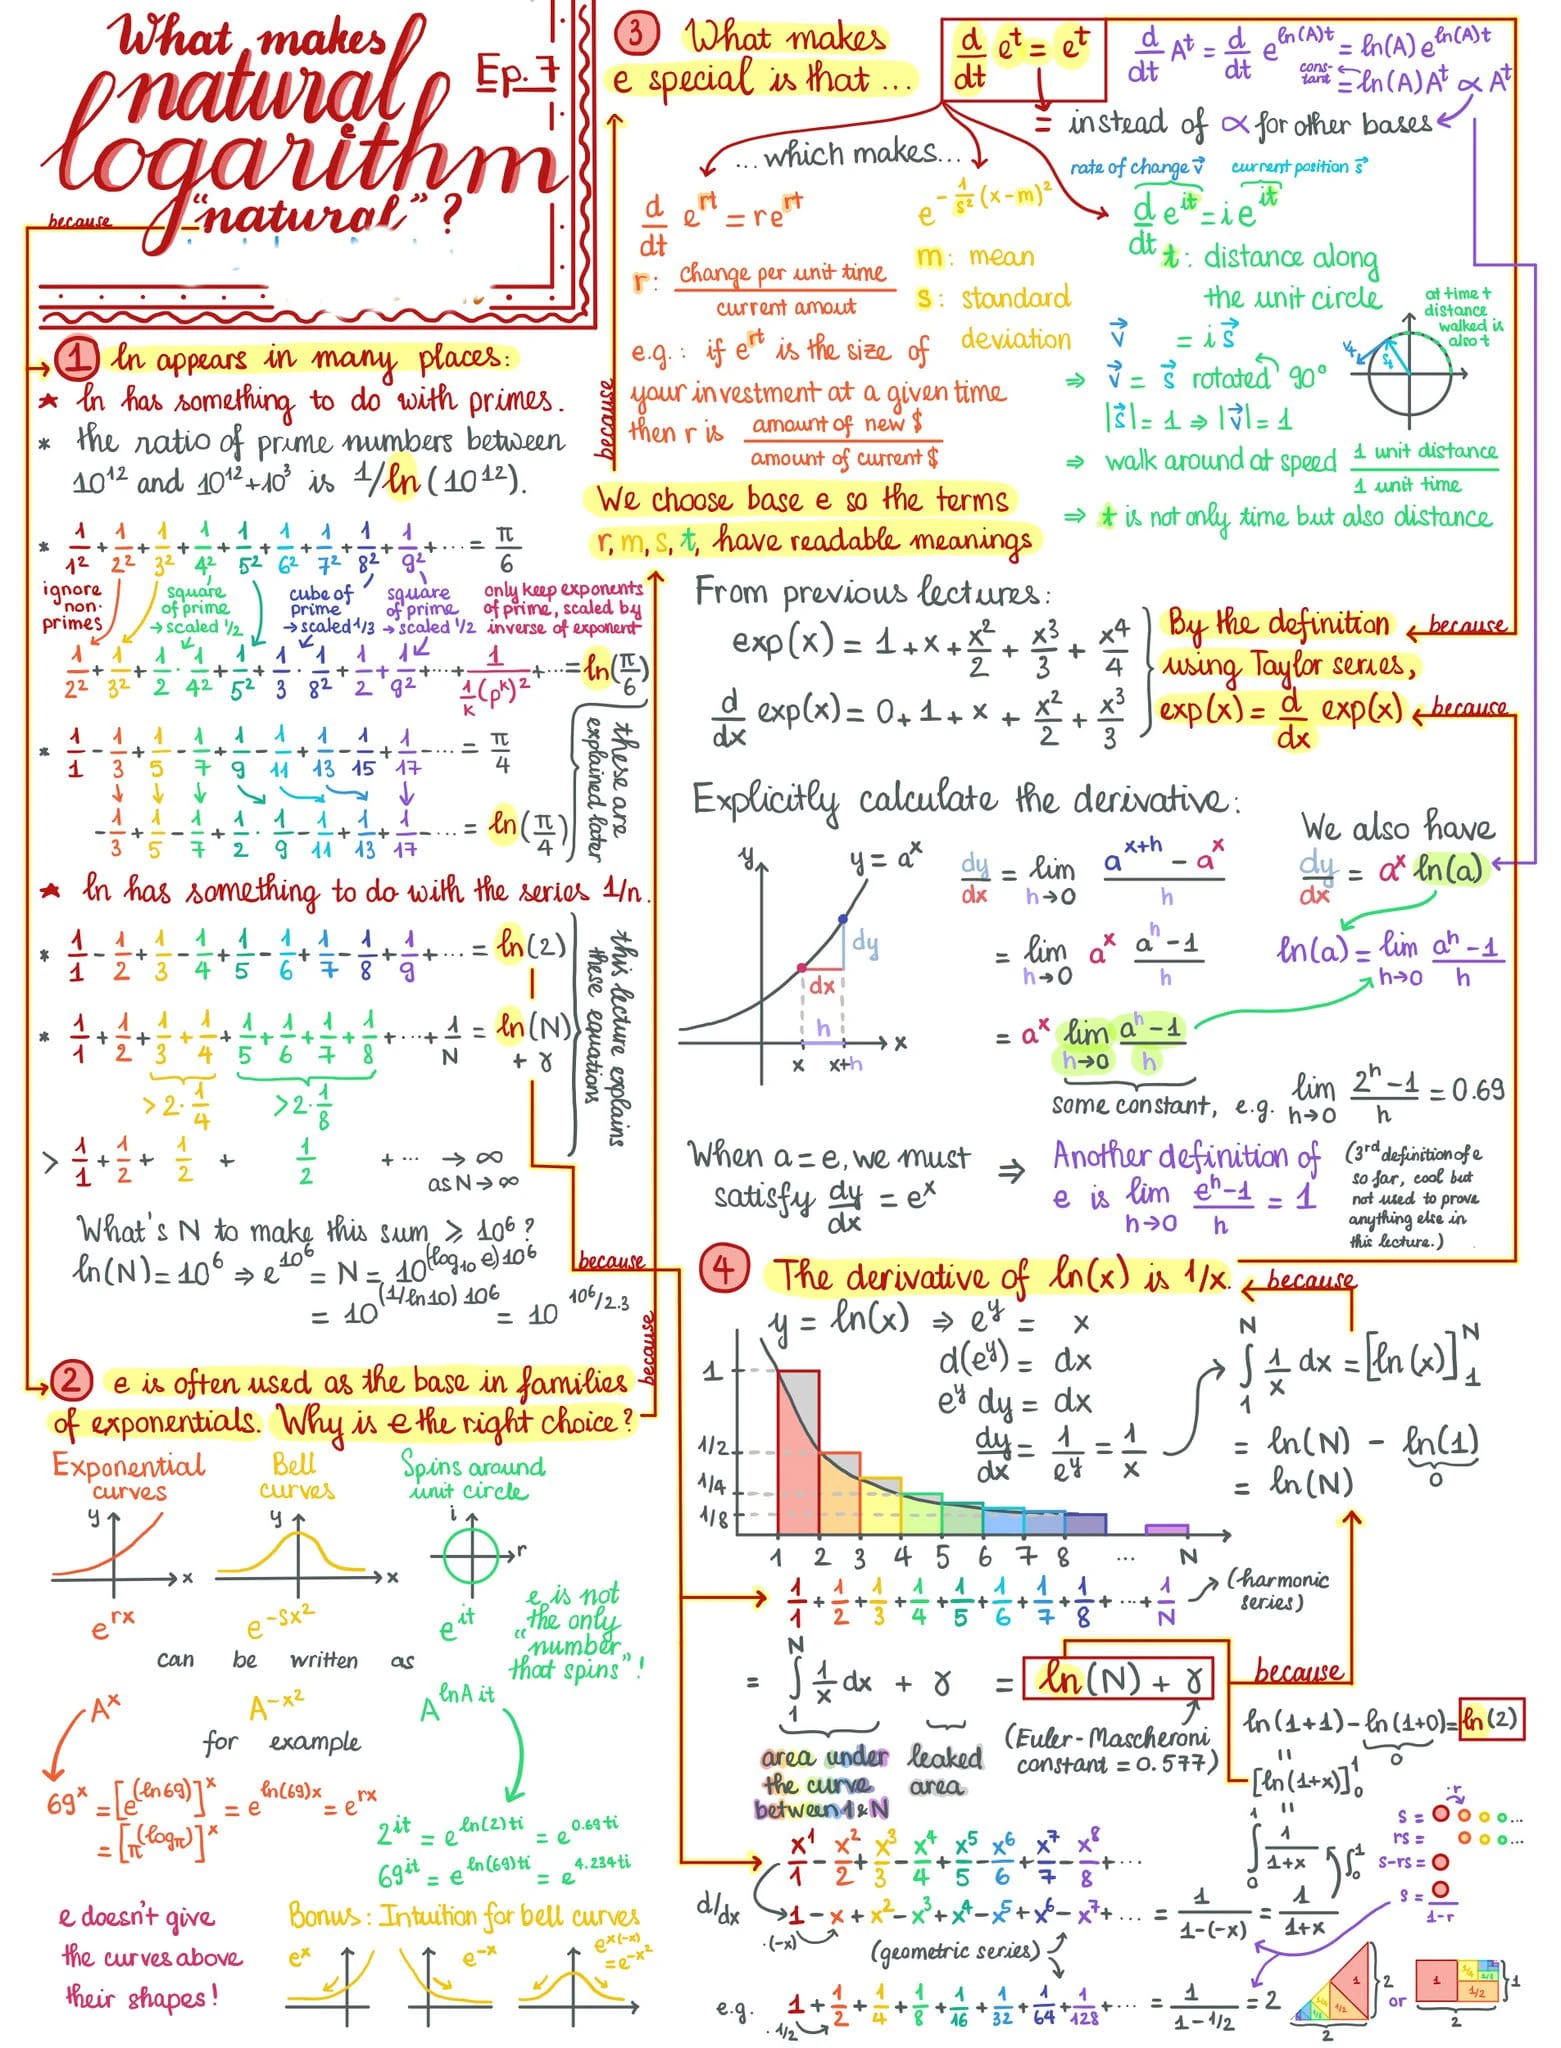 What makes
natural
logarithm
"natural"?
Ep. 7
because
1 ln appears in many places:
★ ln has something to do with primes.
* the ratio of prime numbers between
10¹² and 10¹²+10³ is 1/ln(10¹²).
* 1/1² + 1/2² + 1/3² + 1/4² + 1/5² + 1/6² + 1/7² + 1/8² + 1/9² + ... = π/6
ignore non-primes
square of prime → scaled 1/2
cube of prime → scaled 1/3
square of prime → scaled 1/2
only keep exponents of prime, scaled by inverse of exponent
1/2² + 1/3² + 1/2 · 1/4² + 1/5² + 1/3 · 1/8² + 1/2 + 1/9² + ... + 1/(1/k (pᵏ)²) + ... = ln(π/6)
* 1/1 - 1/3 + 1/5 - 1/7 + 1/9 - 1/11 + 1/13 - 1/15 + 1/17 - ... = π/4
- 1/3 + 1/5 - 1/7 + 1/2 · 1/9 - 1/11 + 1/13 + 1/17 - ... = ln(π/4)
these are explained later
★ ln has something to do with the series 1/n.
* 1/1 - 1/2 + 1/3 - 1/4 + 1/5 - 1/6 + 1/7 - 1/8 + 1/9 + ... = ln(2)
* 1/1 + 1/2 + 1/3 + 1/4 + 1/5 + 1/6 + 1/7 + 1/8 + ... + 1/N = ln(N) + γ
>2·1/4 >2·1/8
> 1/1 + 1/2 + 1/2 + 1/2 + ... → ∞
as N → ∞
this lecture explains these equations
What's N to make this sum ⩾ 10⁶?
ln(N) = 10⁶ ⇒ e^10⁶ = N = 10^(log₁₀ e)10⁶
= 10^(1/ln10) 10⁶ = 10^10⁶/2.3
because
because
2 e is often used as the base in families
of exponentials. Why is e the right choice?
Exponential curves
Bell curves
Spins around unit circle
y x
y x
i r
e^rx
e^-sx²
e^it
e is not the only "number that spins"!
can be written as
A^x
A^-x²
A^lnA it
for example
69^x = [e^(ln69)]^x = e^ln(69)x = e^rx
= [π^(logπ)]^x
2^it = e^ln(2)ti = e^0.69ti
69^it = e^ln(69)ti = e^4.234ti
e doesn't give
the curves above
their shapes!
Bonus: Intuition for bell curves
e^x
e^-x
e^x(-x) = e^-x²
3 What makes
e special is that ...
d/dt e^t = e^t
d/dt A^t = d/dt e^ln(A)t = ln(A) e^ln(A)t
constant
= ln(A) A^t ∝ A^t
= instead of ∝ for other bases
...which makes...
d/dt e^rt = r e^rt
r: change per unit time / current amout
e.g.: if e^rt is the size of
your investment at a given time
then r is amount of new $ / amount of current $
e^-1/s² (x-m)²
m: mean
s: standard
deviation
rate of change v⃗
current position s⃗
d/dt e^it = i e^it
t: distance along
the unit circle
v⃗ = i s⃗
⇒ v⃗ = s⃗ rotated 90°
|s⃗| = 1 ⇒ |v⃗| = 1
⇒ walk around at speed 1 unit distance / 1 unit time
⇒ t is not only time but also distance
at time t distance walked is also t
v_t
s_t
because
We choose base e so the terms
r, m, s, t, have readable meanings
From previous lectures:
exp(x) = 1 + x + x²/2 + x³/3 + x⁴/4
d/dx exp(x) = 0 + 1 + x + x²/2 + x³/3
By the definition
using Taylor series,
exp(x) = d/dx exp(x)
because
because
Explicitly calculate the derivative:
y y = a^x
dy
dx
h
x x+h x
dy/dx = lim h→0 a^x+h - a^x / h
= lim h→0 a^x a^h - 1 / h
= a^x lim h→0 a^h - 1 / h
some constant, e.g. lim h→0 2^h - 1 / h = 0.69
We also have
dy/dx = a^x ln(a)
ln(a) = lim h→0 a^h - 1 / h
When a = e, we must
satisfy dy/dx = e^x
⇒
Another definition of
e is lim h→0 e^h - 1 / h = 1
(3rd definition of e so far, cool but not used to prove anything else in this lecture.)
4 The derivative of ln(x) is 1/x.
because
y = ln(x) ⇒ e^y = x
d(e^y) = dx
e^y dy = dx
dy/dx = 1/e^y = 1/x
∫₁ᴺ 1/x dx = [ln(x)]₁ᴺ
= ln(N) - ln(1)
0
= ln(N)
1
1/2
1/4
1/8
1 2 3 4 5 6 7 8 ... N
1/1 + 1/2 + 1/3 + 1/4 + 1/5 + 1/6 + 1/7 + 1/8 + ... + 1/N
(harmonic series)
= ∫₁ᴺ 1/x dx + γ = ln(N) + γ
because
area under the curve between 1 & N
leaked area
(Euler-Mascheroni constant = 0.577)
ln(1+1) - ln(1+0) = ln(2)
0
=
[ln(1+x)]₀¹
=
∫₀¹ 1/1+x
∫₀¹
x¹/1 - x²/2 + x³/3 - x⁴/4 + x⁵/5 - x⁶/6 + x⁷/7 - x⁸/8 + ...
d/dx
1 - x + x² - x³ + x⁴ - x⁵ + x⁶ - x⁷ + ... = 1/1-(-x) = 1/1+x
·(-x)
(geometric series)
e.g. 1 + 1/2 + 1/4 + 1/8 + 1/16 + 1/32 + 1/64 + 1/128 + ... = 1/1-1/2 = 2
·1/2
·r
s = ...
rs = ...
s-rs =
s = 1-r
1 1/2 2 2
or
1 1/2 1/4 1/8 1 2